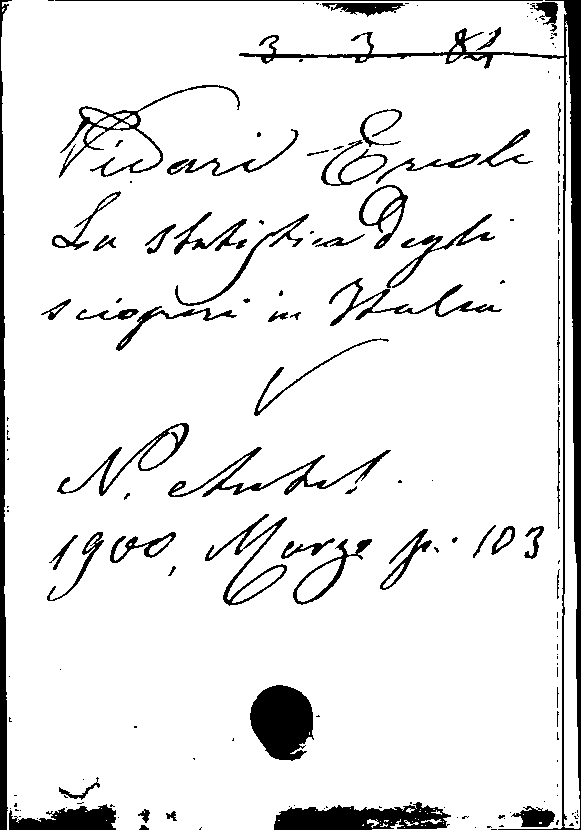 3. 3. 84
Vidari Ercole
La statistica degli
scioperi in Italia
N. Antol.
1900, Marzo p. 103